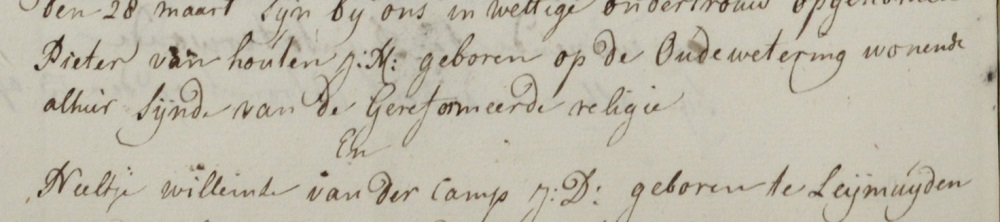 den 28 maart sijn bij ons in wettige ondertrouw opgenomen
Pieter van houten J: M: geboren op de Oudewetering wonende
alhier sijnde van de Gereformeerde religie
En
Neeltje willemte van der Camp J: D: geboren te Leijmuijden